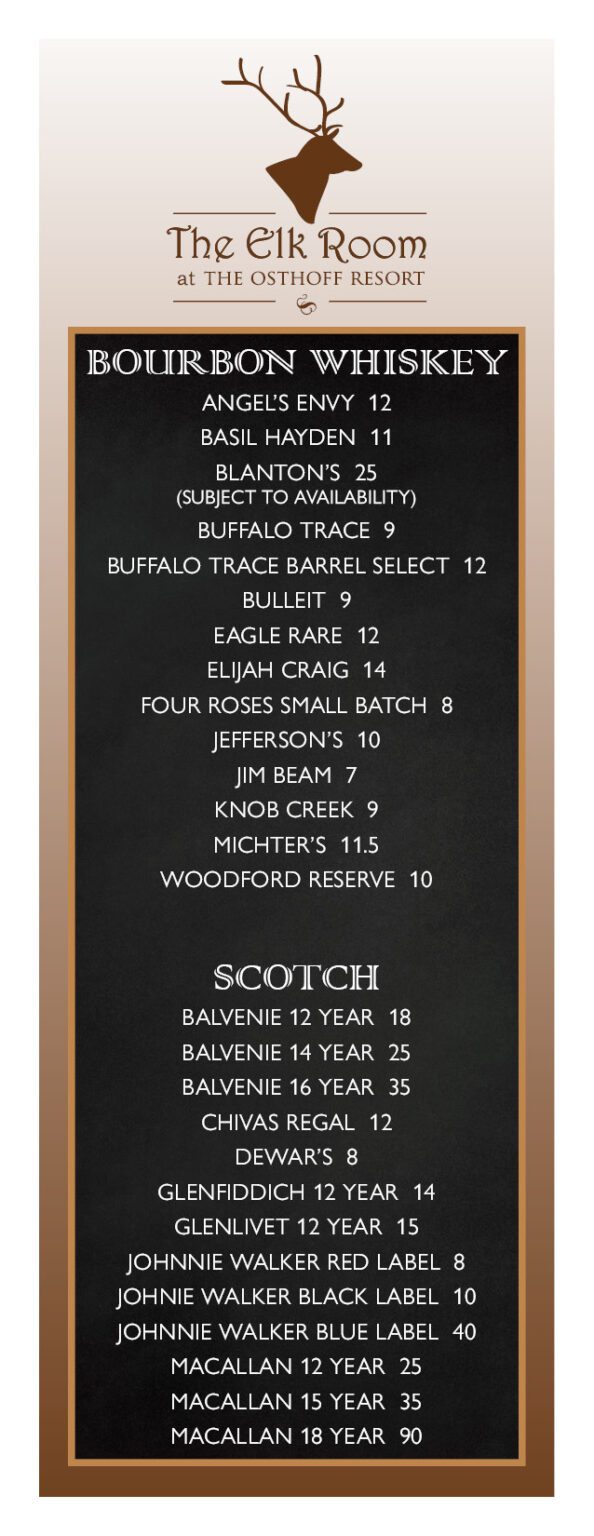 The Elk Room
at THE OSTHOFF RESORT
BOURBON WHISKEY
ANGEL'S ENVY 12
BASIL HAYDEN 11
BLANTON'S 25
(SUBJECT TO AVAILABILITY)
BUFFALO TRACE 9
BUFFALO TRACE BARREL SELECT 12
BULLEIT 9
EAGLE RARE 12
ELIJAH CRAIG 14
FOUR ROSES SMALL BATCH 8
JEFFERSON'S 10
JIM BEAM 7
KNOB CREEK 9
MICHTER'S 11.5
WOODFORD RESERVE 10
SCOTCH
BALVENIE 12 YEAR 18
BALVENIE 14 YEAR 25
BALVENIE 16 YEAR 35
CHIVAS REGAL 12
DEWAR'S 8
GLENFIDDICH 12 YEAR 14
GLENLIVET 12 YEAR 15
JOHNNIE WALKER RED LABEL 8
JOHNIE WALKER BLACK LABEL 10
JOHNNIE WALKER BLUE LABEL 40
MACALLAN 12 YEAR 25
MACALLAN 15 YEAR 35
MACALLAN 18 YEAR 90